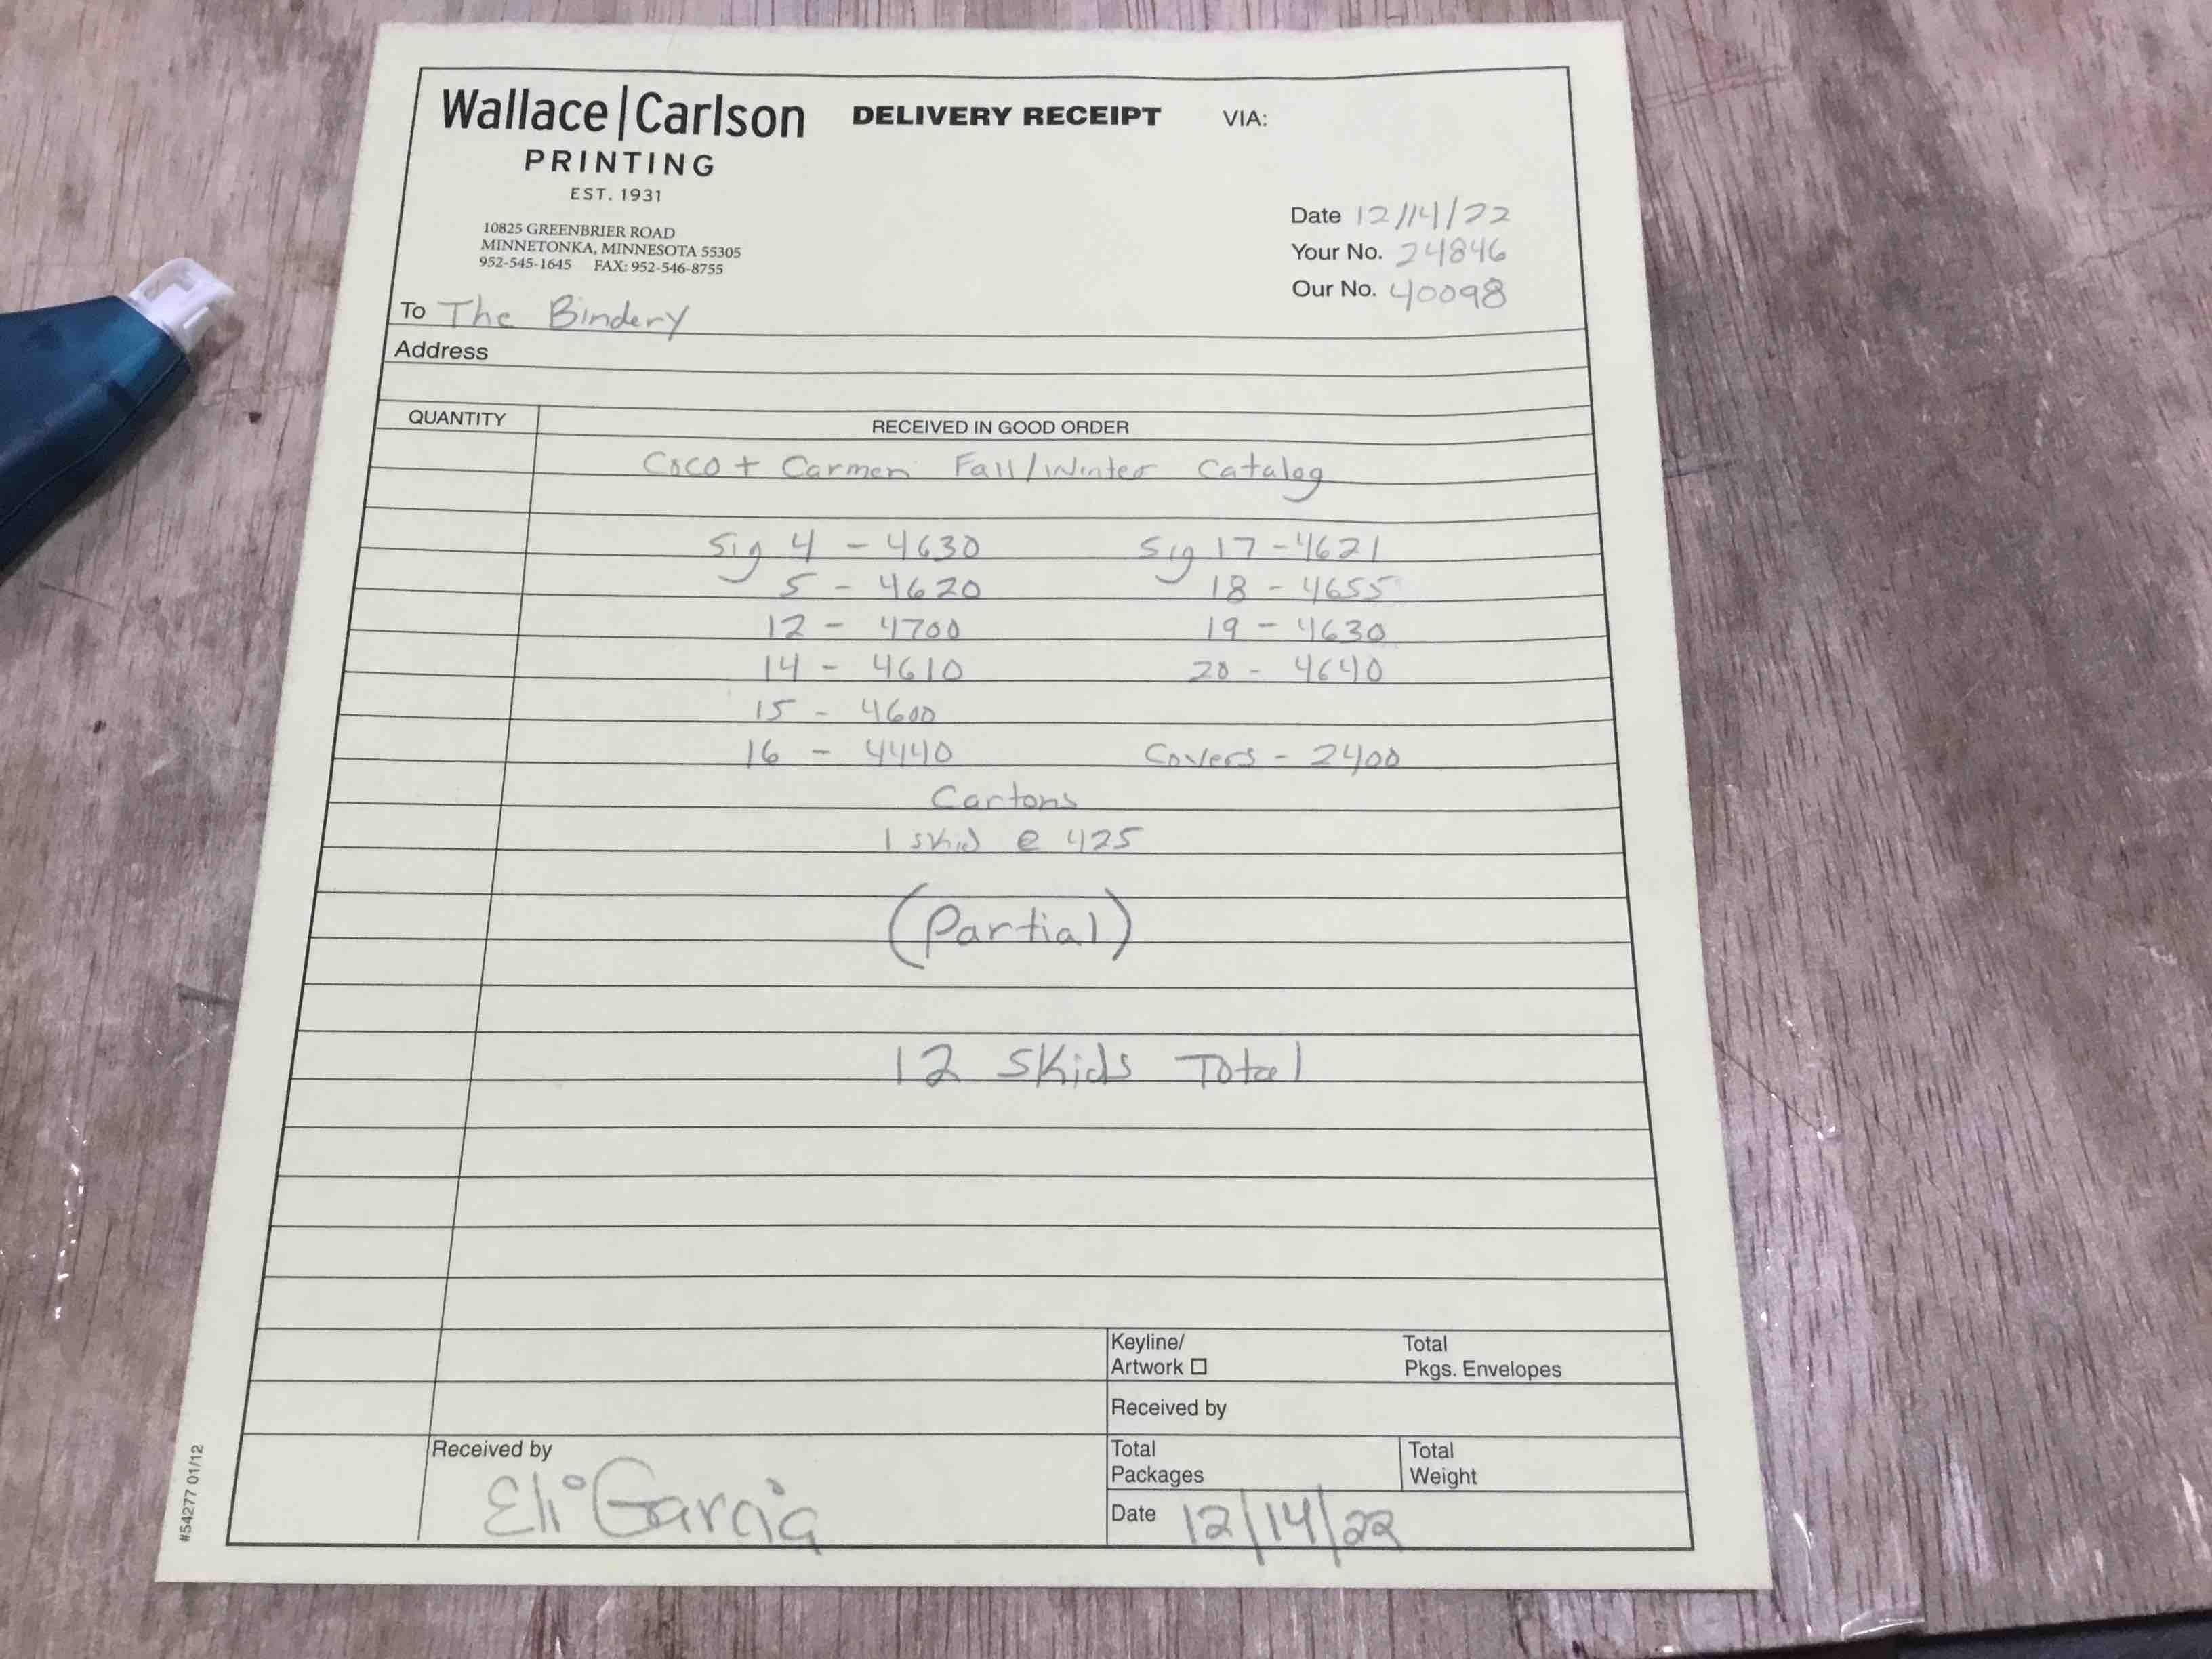 Wallace|Carlson
PRINTING
EST. 1931
10825 GREENBRIER ROAD
MINNETONKA, MINNESOTA 55305
952-545-1645 FAX: 952-546-8755
DELIVERY RECEIPT VIA:
Date 12/14/22
Your No. 24846
Our No. 40098
To The Bindery
Address
QUANTITY RECEIVED IN GOOD ORDER
Coco + Carmen Fall/Winter Catalog
Sig 4 - 4630 Sig 17 - 4621
5 - 4620 18 - 4655
12 - 4700 19 - 4630
14 - 4610 20 - 4640
15 - 4600
16 - 4440 Covers - 2400
Cartons
1 skid @ 425
(Partial)
12 Skids Total
Keyline/
Artwork ☐
Total
Pkgs. Envelopes
Received by
Received by
Eli Garcia
Total
Packages
Total
Weight
Date 12/14/22
#54277 01/12